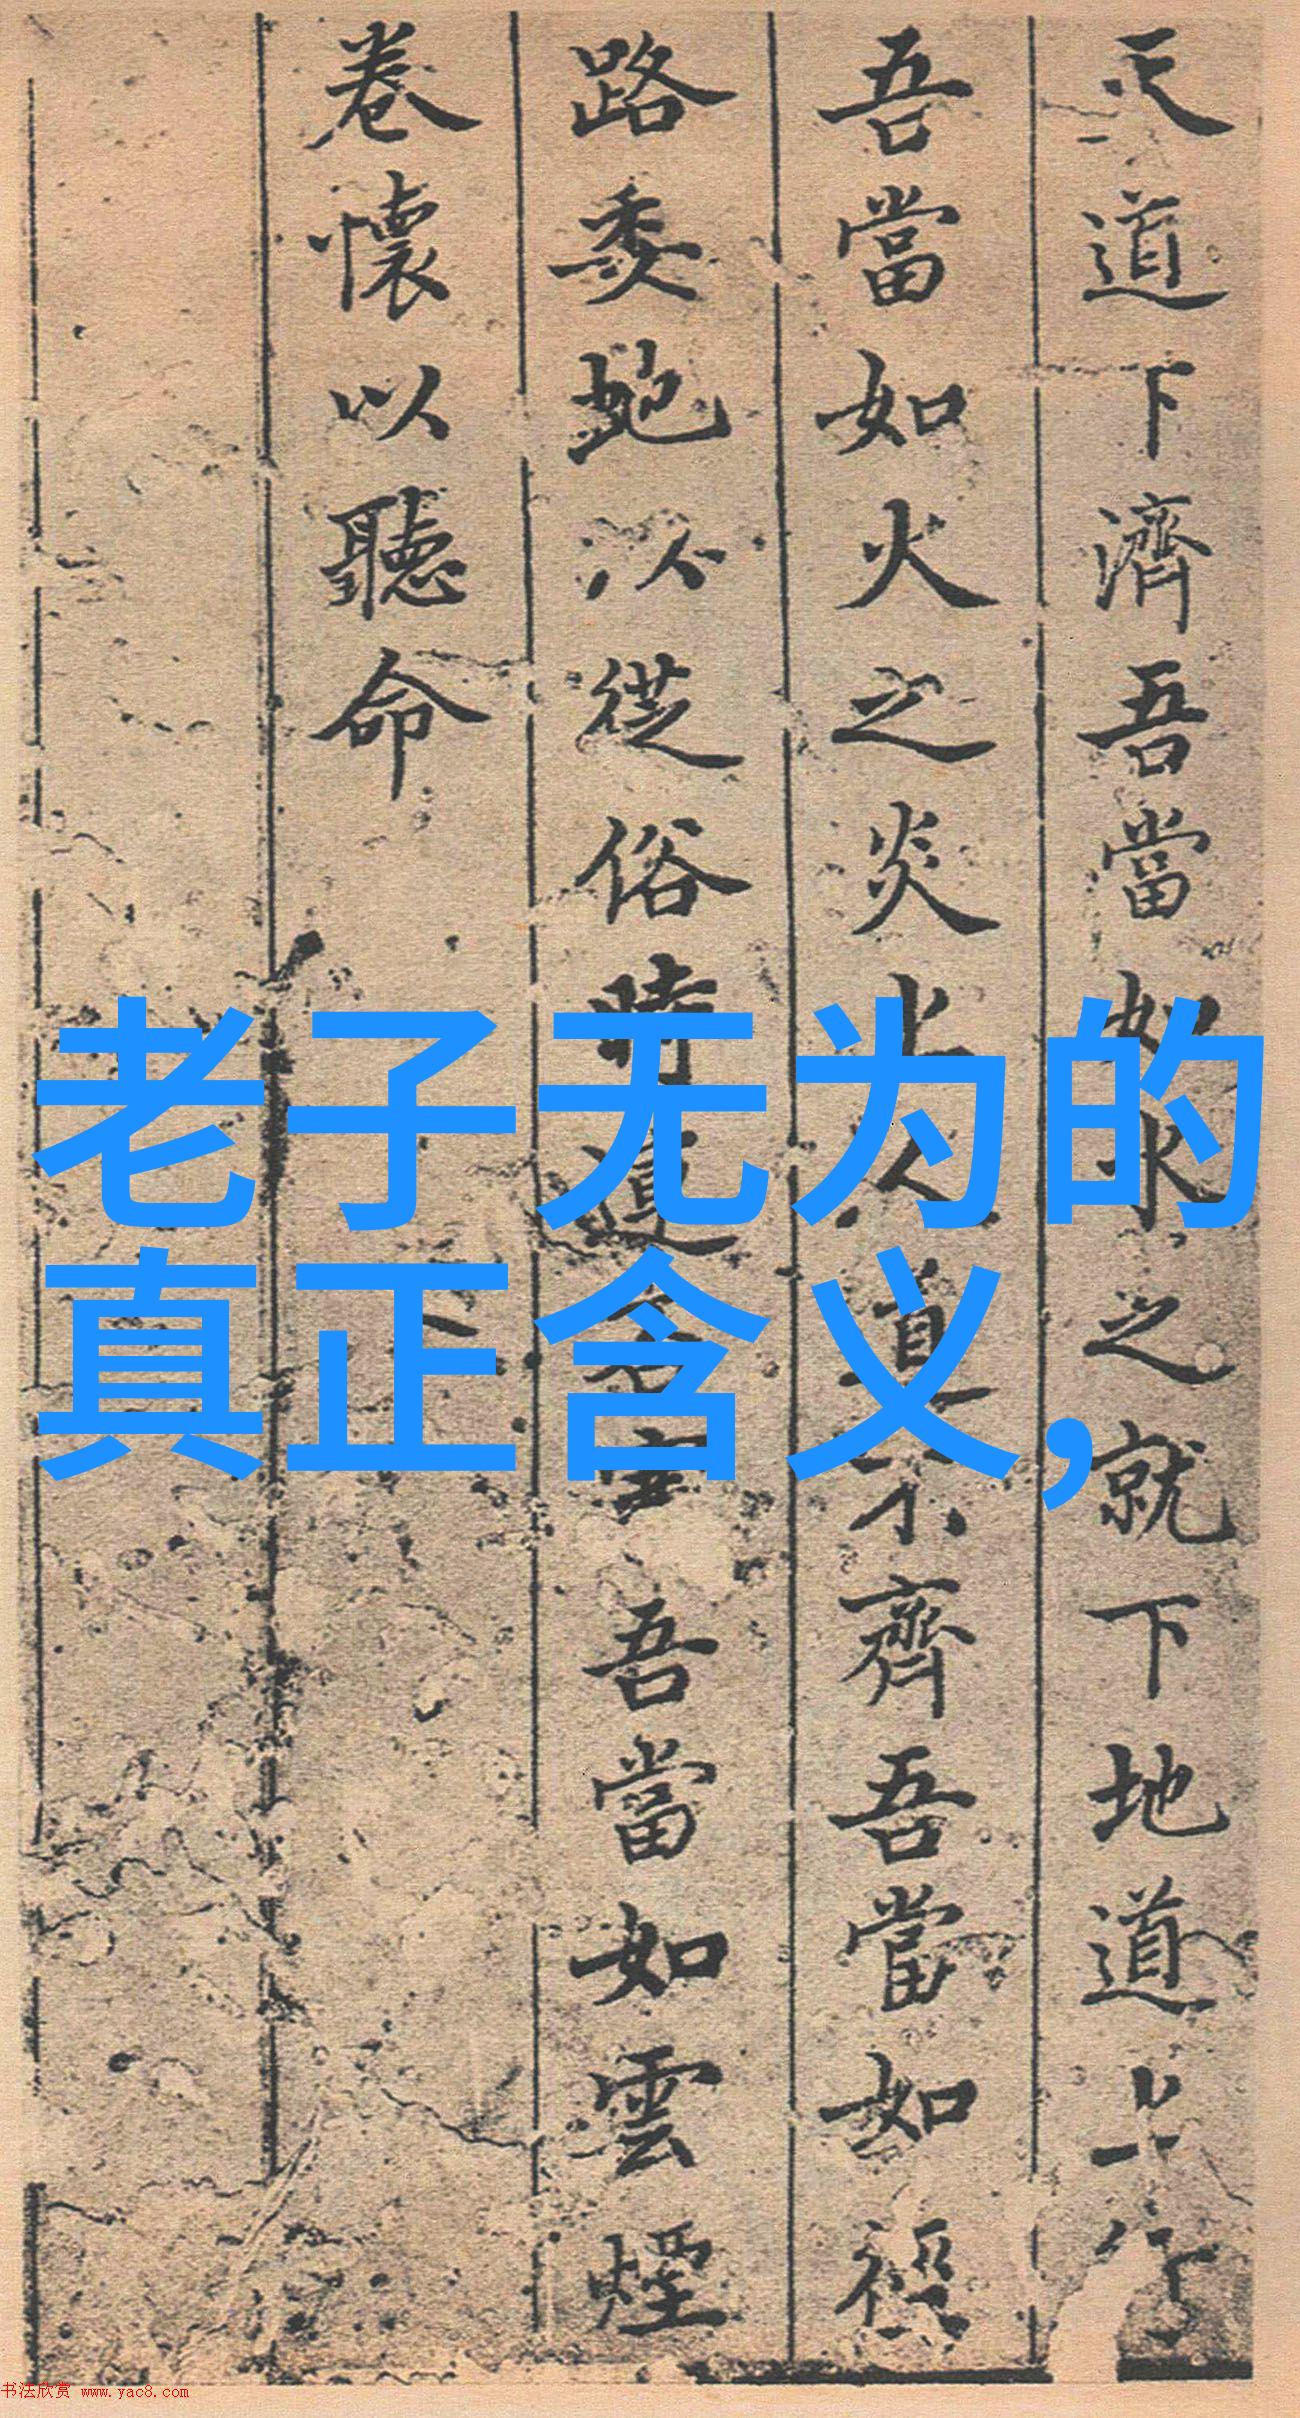 天道下濟吾當如水之就下地道上行
吾當如火之炎上人道不齊吾當如徑
路委虵以從俗時道安吾當如雲煙
卷懷以聽命
老子无为的
真正含义,
书法欣赏 www.yac8.com